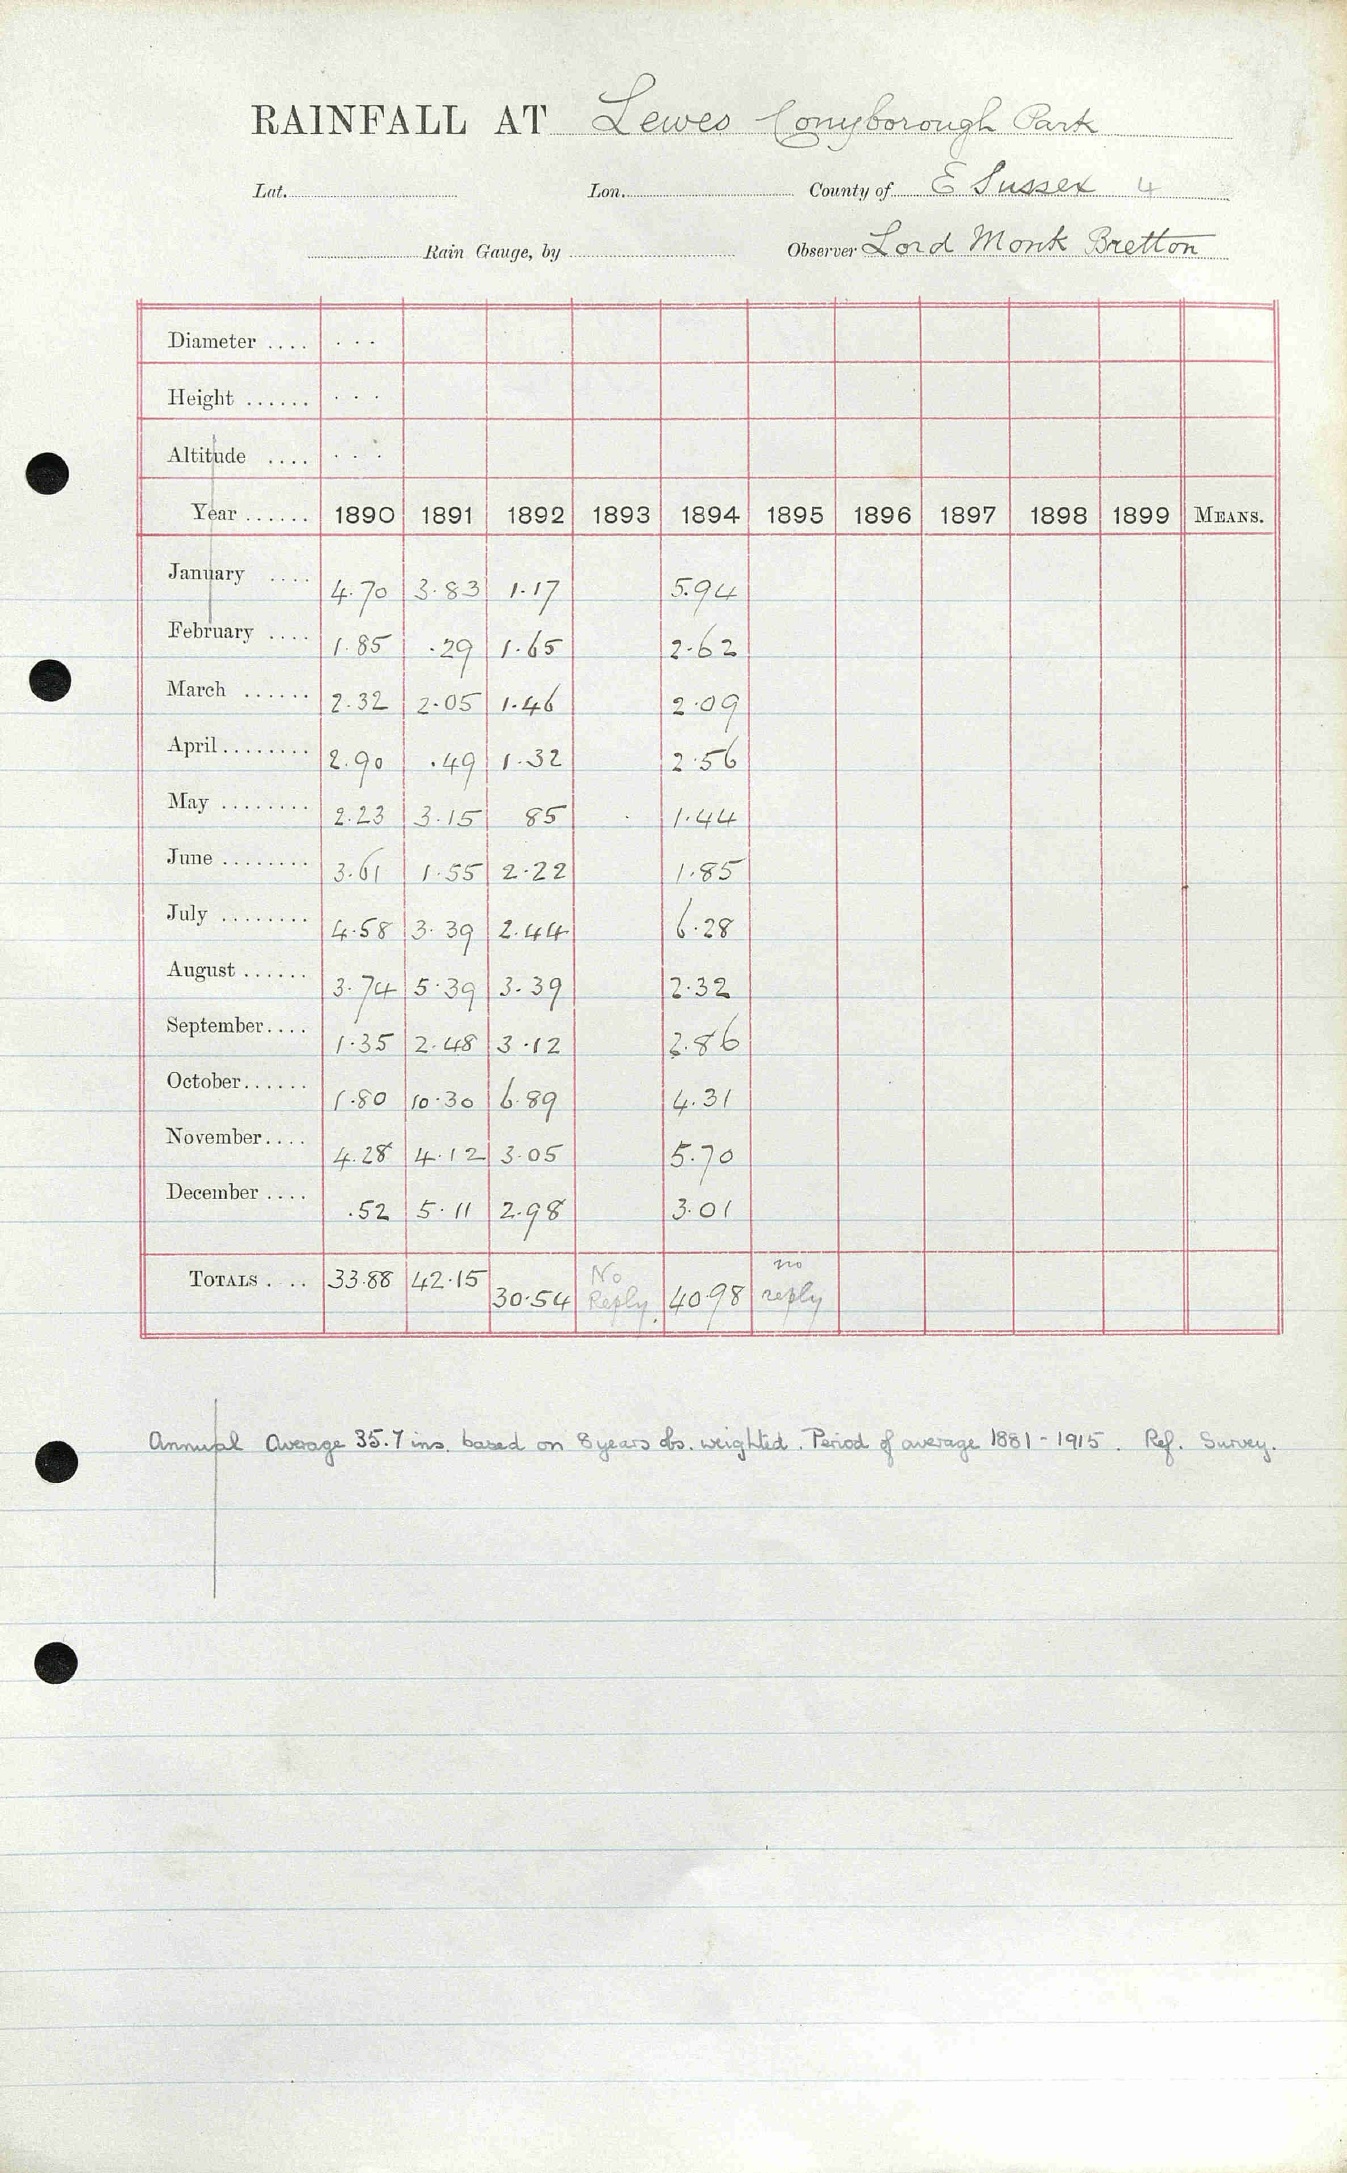 RAINFALL AT Lewes Conyborough Park
Lat. Lon. County of E Sussex 4
Rain Gauge, by Observer Lord Monk Bretton
Diameter ....
Height ......
Altitude ....
Year ...... 1890 1891 1892 1893 1894 1895 1896 1897 1898 1899 MEANS.
January .... 4.70 3.83 1.17 5.94
February .... 1.85 .29 1.65 2.62
March ...... 2.32 2.05 1.46 2.09
April ........ 2.90 .49 1.32 2.56
May ........ 2.23 3.15 85 1.44
June ........ 3.61 1.55 2.22 1.85
July ........ 4.58 3.39 2.44 6.28
August ...... 3.74 5.39 3.39 2.32
September.... 1.35 2.48 3.12 2.86
October...... 1.80 10.30 6.89 4.31
November.... 4.28 4.12 3.05 5.70
December .... .52 5.11 2.98 3.01
TOTALS . .. 33.88 42.15 30.54 No Reply. 40.98 no reply
Annual Average 35.7 ins. based on 8 years obs. weighted. Period of average 1881-1915. Ref. Survey.